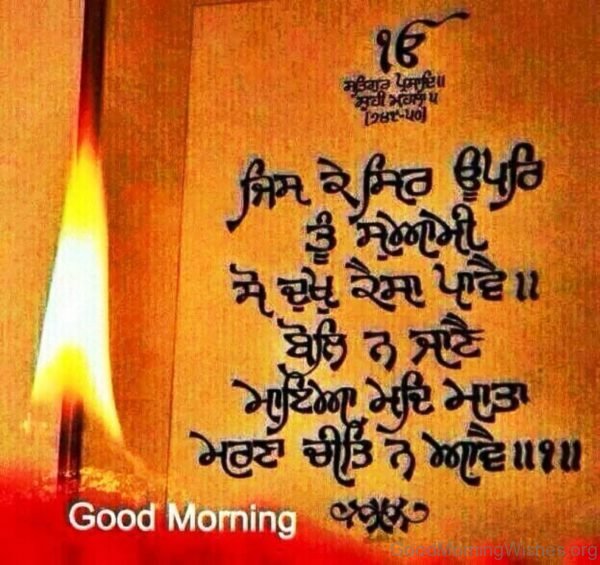 ੴ
ਸਤਿਗੁਰ ਪ੍ਰਸਾਦਿ॥
ਸੂਹੀ ਮਹਲਾ ੫
(੭੪੯-੫੦)
ਜਿਸ ਕੇ ਸਿਰ ਊਪਰਿ
ਤੂੰ ਸੁਆਮੀ
ਸੋ ਦੁਖੁ ਕੈਸਾ ਪਾਵੈ॥
ਬੋਲਿ ਨ ਜਾਣੈ
ਮਾਇਆ ਮਦਿ ਮਾਤਾ
ਮਰਣਾ ਚੀਤਿ ਨ ਆਵੈ॥੧॥
Good Morning
GoodMorningWishes.org